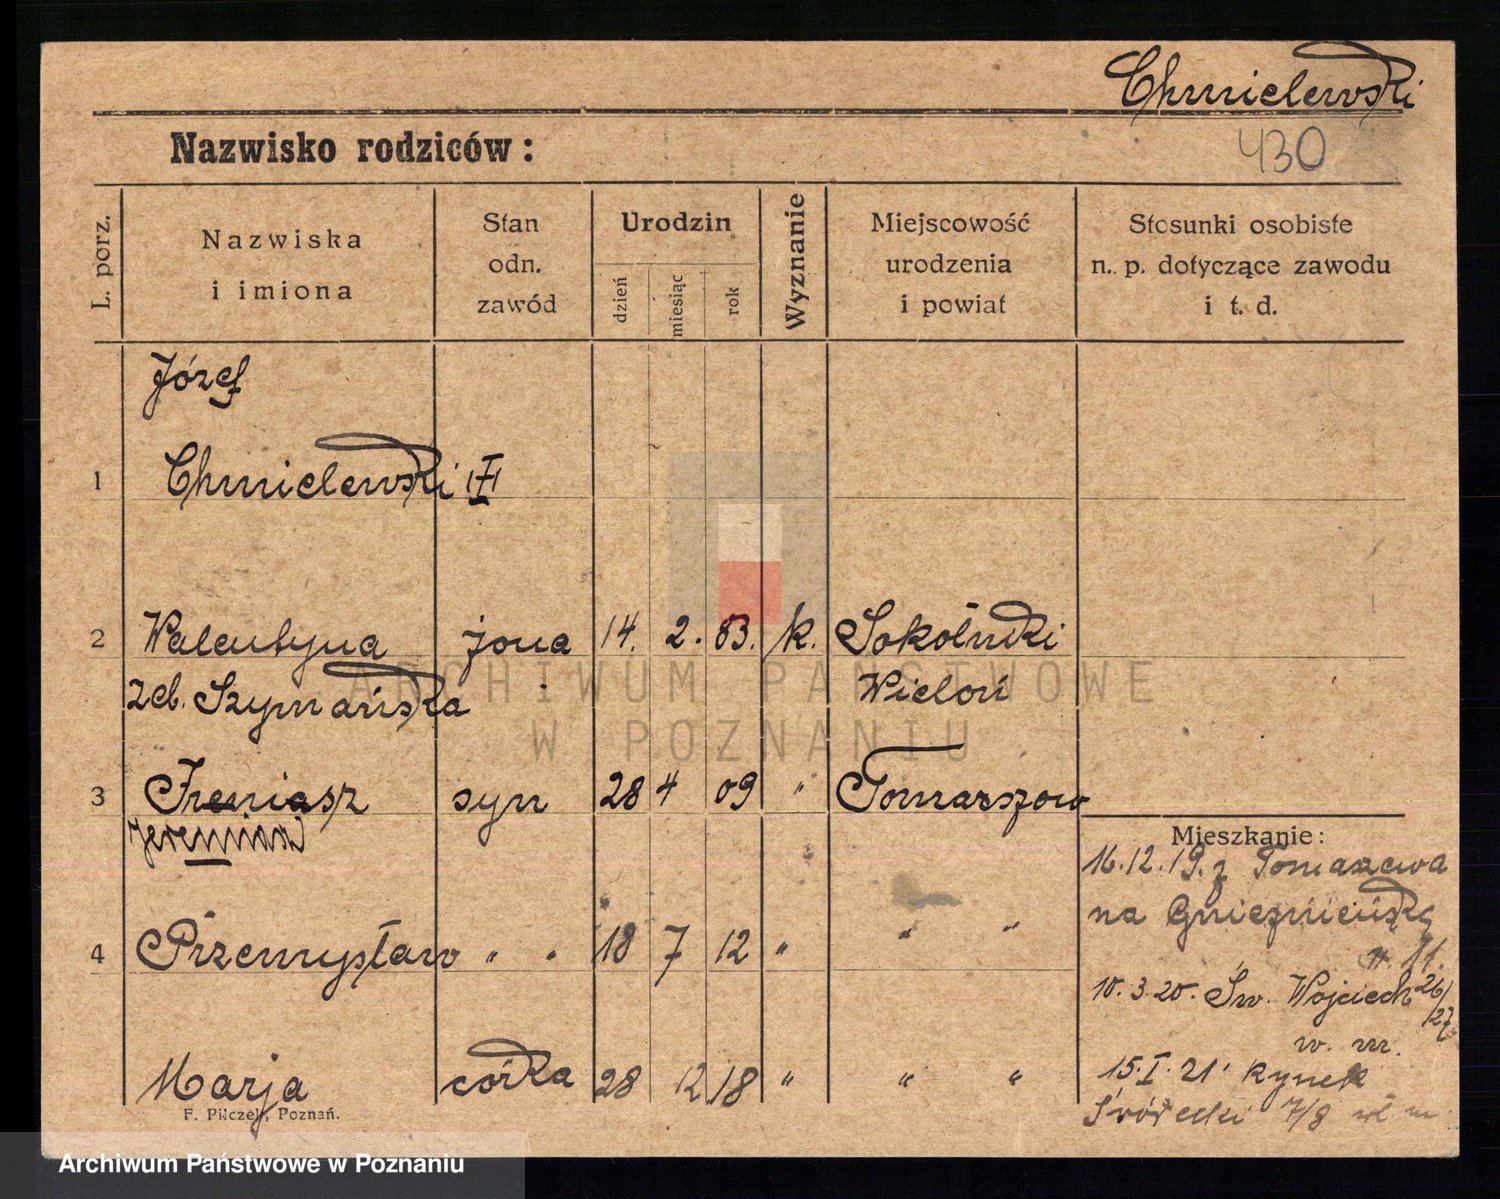 Chmielewski
430
Nazwisko rodziców:
L. porz.
Nazwiska
i imiona
Stan
odn.
zawód
Urodzin
dzień
miesiąc
rok
Wyznanie
Miejscowość
urodzenia
i powiat
Stosunki osobiste
n. p. dotyczące zawodu
i t. d.
Józef
1 Chmielewski
2 Walentyna żona 14. 2. 83. k. Sokolniki
Szymańska Wieloń
3 Ireniasz syn 28 4 09 " Tomaszow
Jeremiasz
Mieszkanie:
16.12.19. z Tomaszowa
na Gnieźnieńską
11.
4 Przemysław " " 18 7 12 " " "
10.3.20. Św. Wojciech 26/27
w. m.
Marja córka 28 12 18 " " "
15.I.21. Rynek
Śródecki 7/8 w m
F. Pilczek, Poznań.
ARCHIWUM PAŃSTWOWE
W POZNANIU
Archiwum Państwowe w Poznaniu